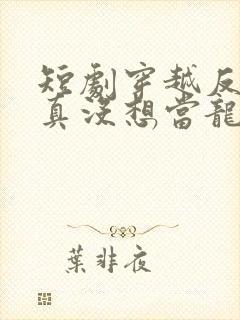 短劇穿越反
真沒想當龍
葉非夜